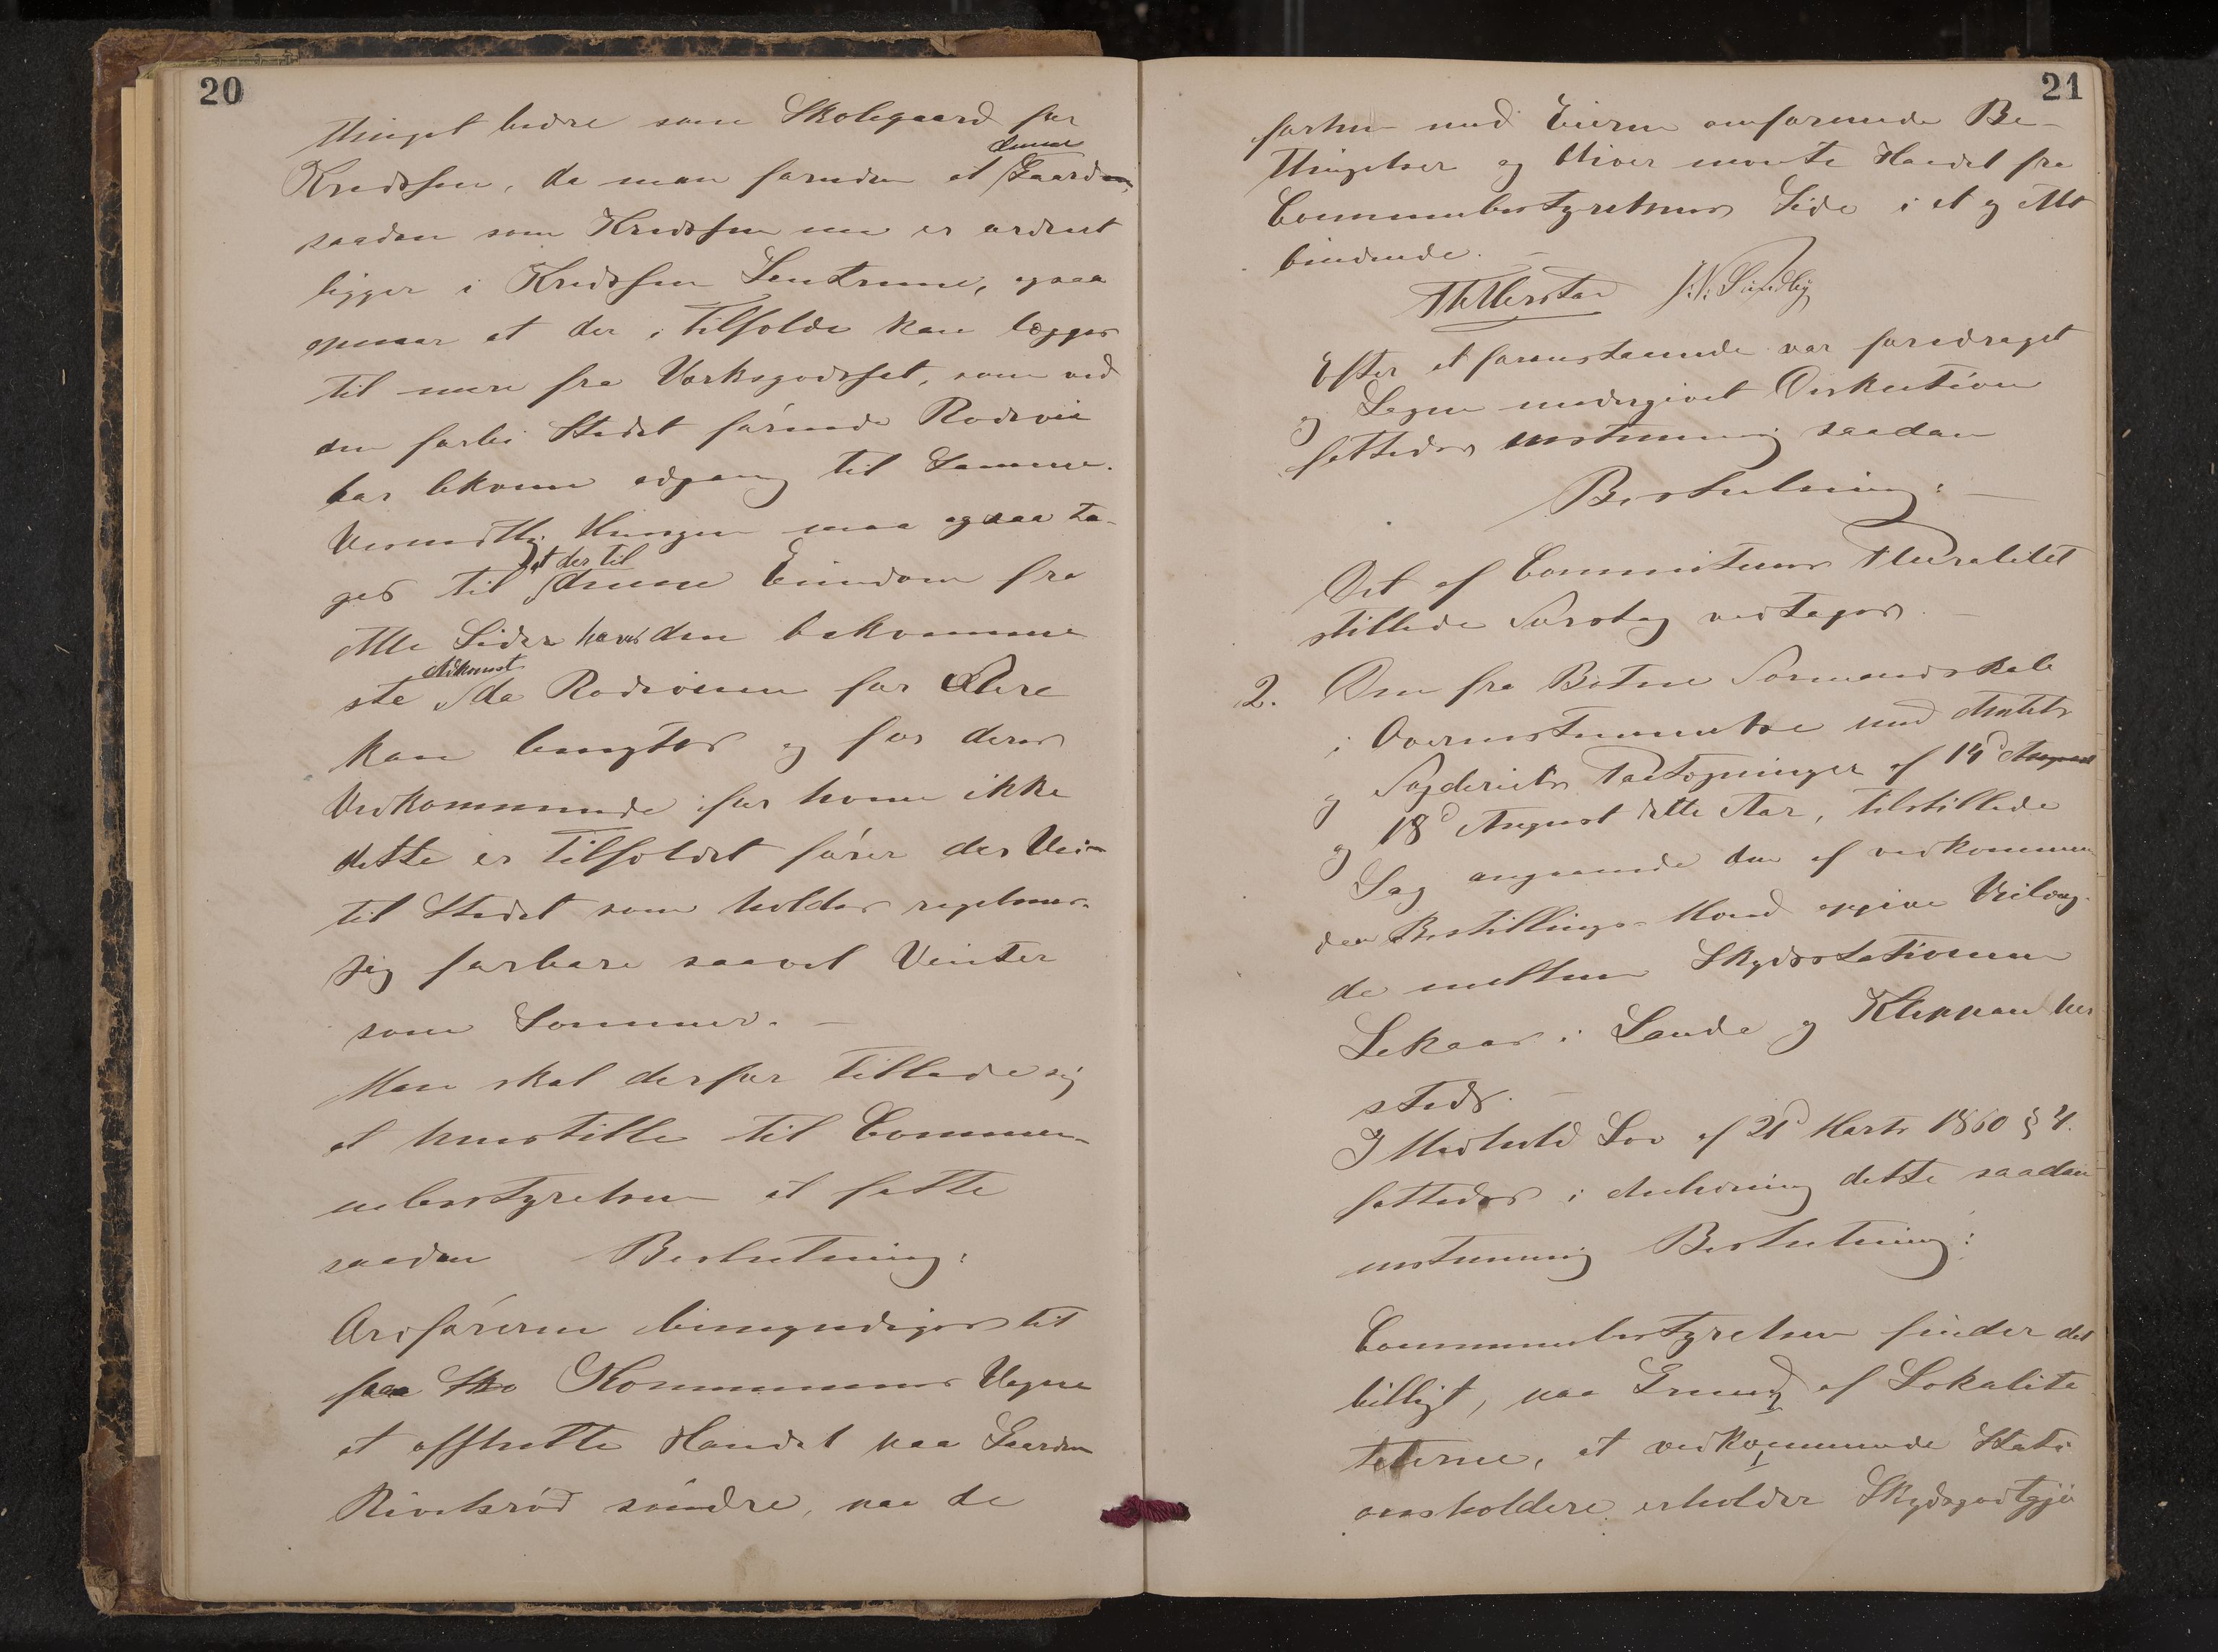 20
meget bedre som Skolegaard for
Kredsen, da man foruden at denne Gaard
saadan som Kredsen nu er ordnet
ligger i Kredsen Sentrum, ogsaa
opnaar at der i Tilfælde kan lægges
til mere fra Værksgodset, som ved
den forbi Stedet førende Rodevei
har bekvem adgang til Samme.
maa ogsaa ta-
ges til at der til denne Eiendom fra
Alle Sider haves den bekvemme
ste Adkomst da Rodeveien for Flere
kan benyttes og for deres
Vedkommende for hvem ikke
dette er Tilfældet fører der Vei
til Stedet som holdes regelmæs-
sig farbare saavel Vinter
som Sommer. —
Man skal derfor tillade sig
at henstille til Commu-
nebestyrelsen at fatte
saadan Beslutning:
Ordføreren bemyndiges til
paa Kommunens Vegne
at afslutte Handel paa Gaarden
søndre, paa de
21
forhen med Eieren omforenede Be-
tingelser og bliver nævnte Handel fra
Communebestyrelsens Side i et og Alt
bindende. —
J. N. Sundby
Efter at foranstaaende var foredraget
og Sagen undergivet Diskution
fattedes enstemmig saadan
Beslutning: —
Det af Commiteens Pluralitet
stillede Forslag vedtages. —
2. Den fra Botne Formandskab
i Overensstemmelse med Amtets
og Fogderiets Paategninger af 14d August
og 18d August dette Aar, tilstillede
Sag angaaende den af vedkommen
den Bestillings-Mand opgivne Veilæng-
de mellem Skydsstationerne
Sekaar i Sande og Kleppan her
steds. —
I Medhold Lov af 21d Marts 1860 § 4.
fattedes i Anledning dette saadan
enstemmig Beslutning:
Communebestyrelsen finder det
billigt, paa Grund af Lokalite
teterne, at vedkommende Stati
onsholdere erholder Skydsgodtgjø